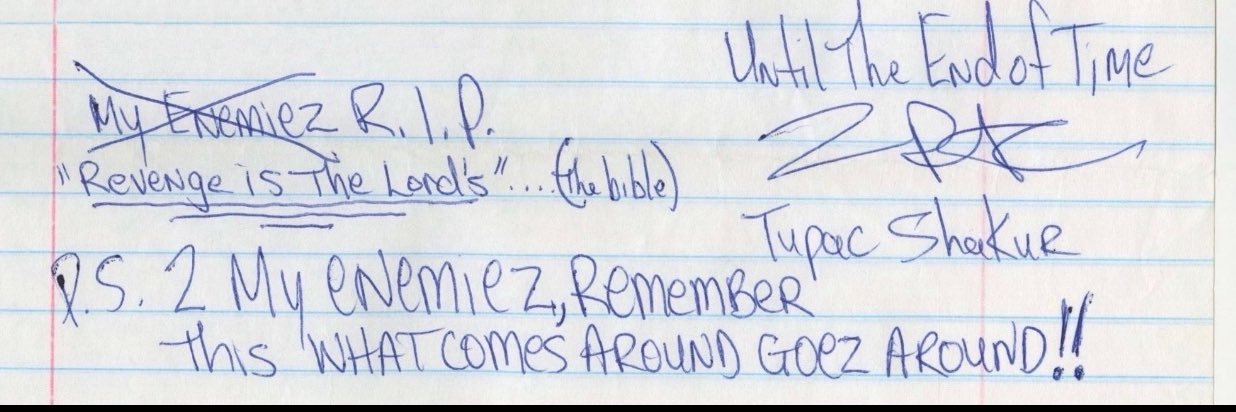 Until The End of Time
My Enemiez R.I.P.
"Revenge is The Lord's".... (the bible)
2PAC
Tupac Shakur
P.S. 2 My enemiez, Remember
this WHAT COMES AROUND GOEZ AROUND!!